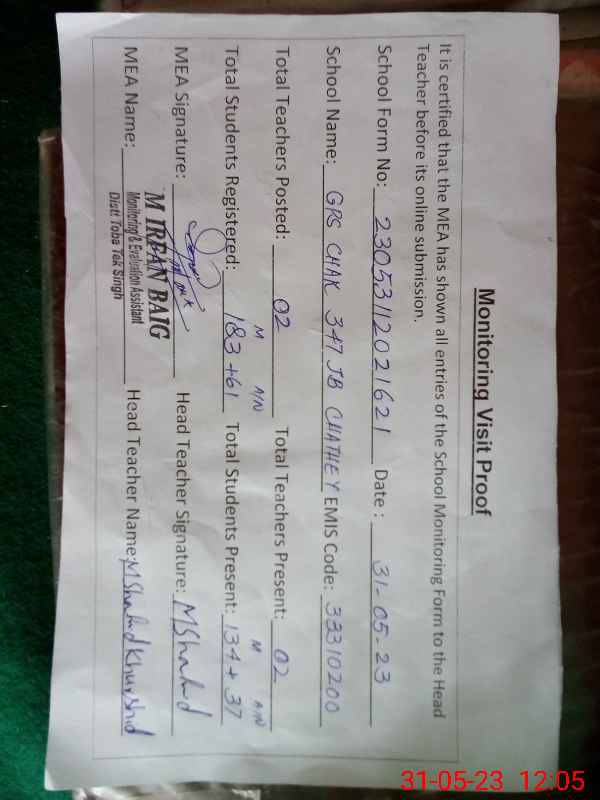 Monitoring Visit Proof
It is certified that the MEA has shown all entries of the School Monitoring Form to the Head
Teacher before its online submission.
School Form No: 23053112021621 Date: 31-05-23
School Name: GPS CHAK 347 JB CHATHEY EMIS Code: 33310200
Total Teachers Posted: 02 Total Teachers Present: 02
M A/N M A/N
Total Students Registered: 183+61 Total Students Present: 134+37
MEA Signature: Head Teacher Signature: MShahid
M IRFAN BAIG
Monitoring & Evaluation Assistant
Distt Toba Tek Singh
MEA Name: Head Teacher Name: M Shahid Khurshid
31-05-23 12:05